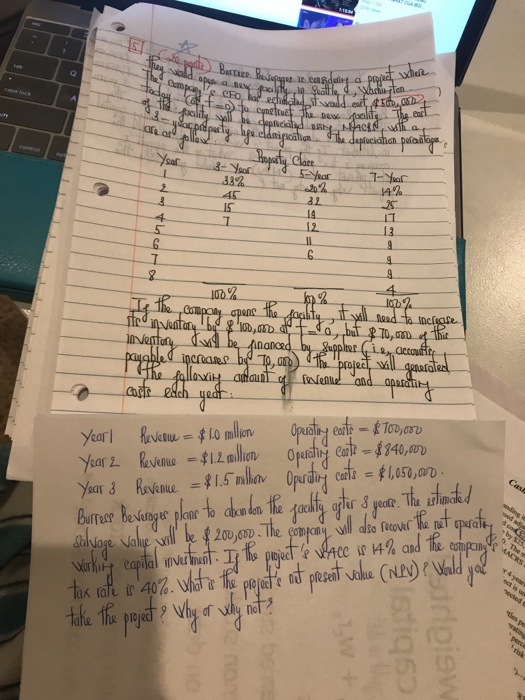 5. (10 points) Burress Beverages is considering a project where
they would open a new facility in Seattle, Washington.
The company's CFO has estimated it would cost $500,000
today (at t=0) to construct the new facility. The cost
of the facility will be depreciated using MACRS with a
3-year property life classification. The depreciation percentages
are as follow:
Property Class
Year 3-Year 5-Year 7-Year
1 33% 20% 14%
2 45 32 25
3 15 19 17
4 7 12 13
5 11 9
6 6 9
7 9
8 4
100% 100% 100%
If the company opens the facility, it will need to increase
its inventory by $100,000 at t=0, but $70,000 of this
inventory will be financed by supplier (i.e., accounts
payable increases by 70,000) The project will generated
the following amount of revenue and operating
costs each year:
Year 1 Revenue = $1.0 million Operating costs = $700,000
Year 2 Revenue = $1.2 million Operating costs = $840,000
Year 3 Revenue = $1.5 million Operating costs = $1,050,000.
Burress Beverages plans to abandon the facility after 3 years. The estimated
Salvage value will be $200,000. The company will also recover the net operating
working capital investment. If the project's WACC is 14% and the company's
tax rate is 40%. What is the project's net present value (NPV)? Would you
take the project? Why or why not?